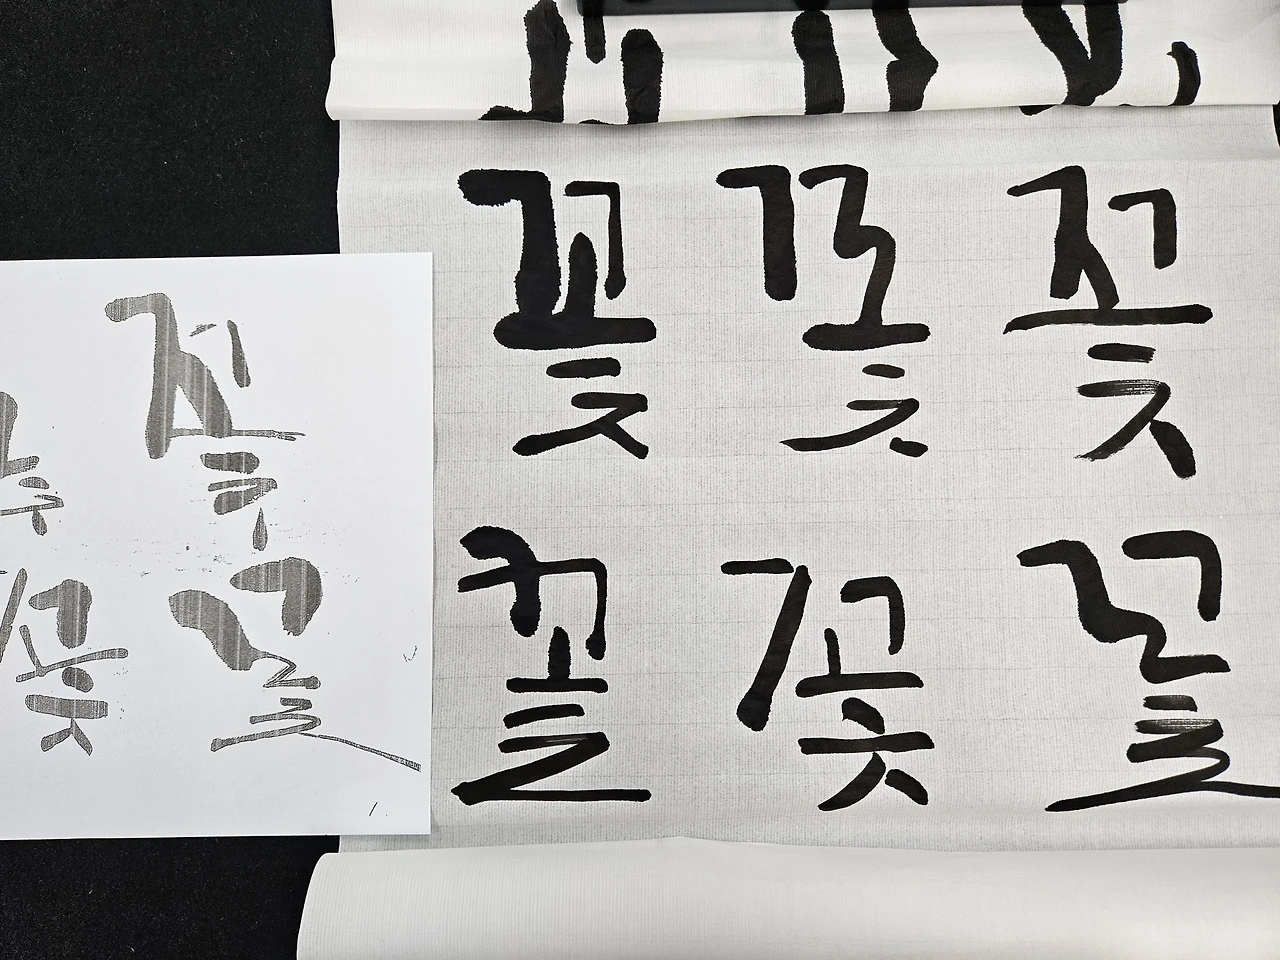 꽃 꽃 꽃
꽃 꽃 꽃
꽃
꽃 꽃